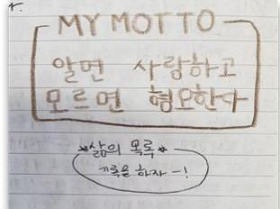 MY MOTTO
알면 사랑하고
모르면 혐오한다
삶의 목록
기록을 하자 -!